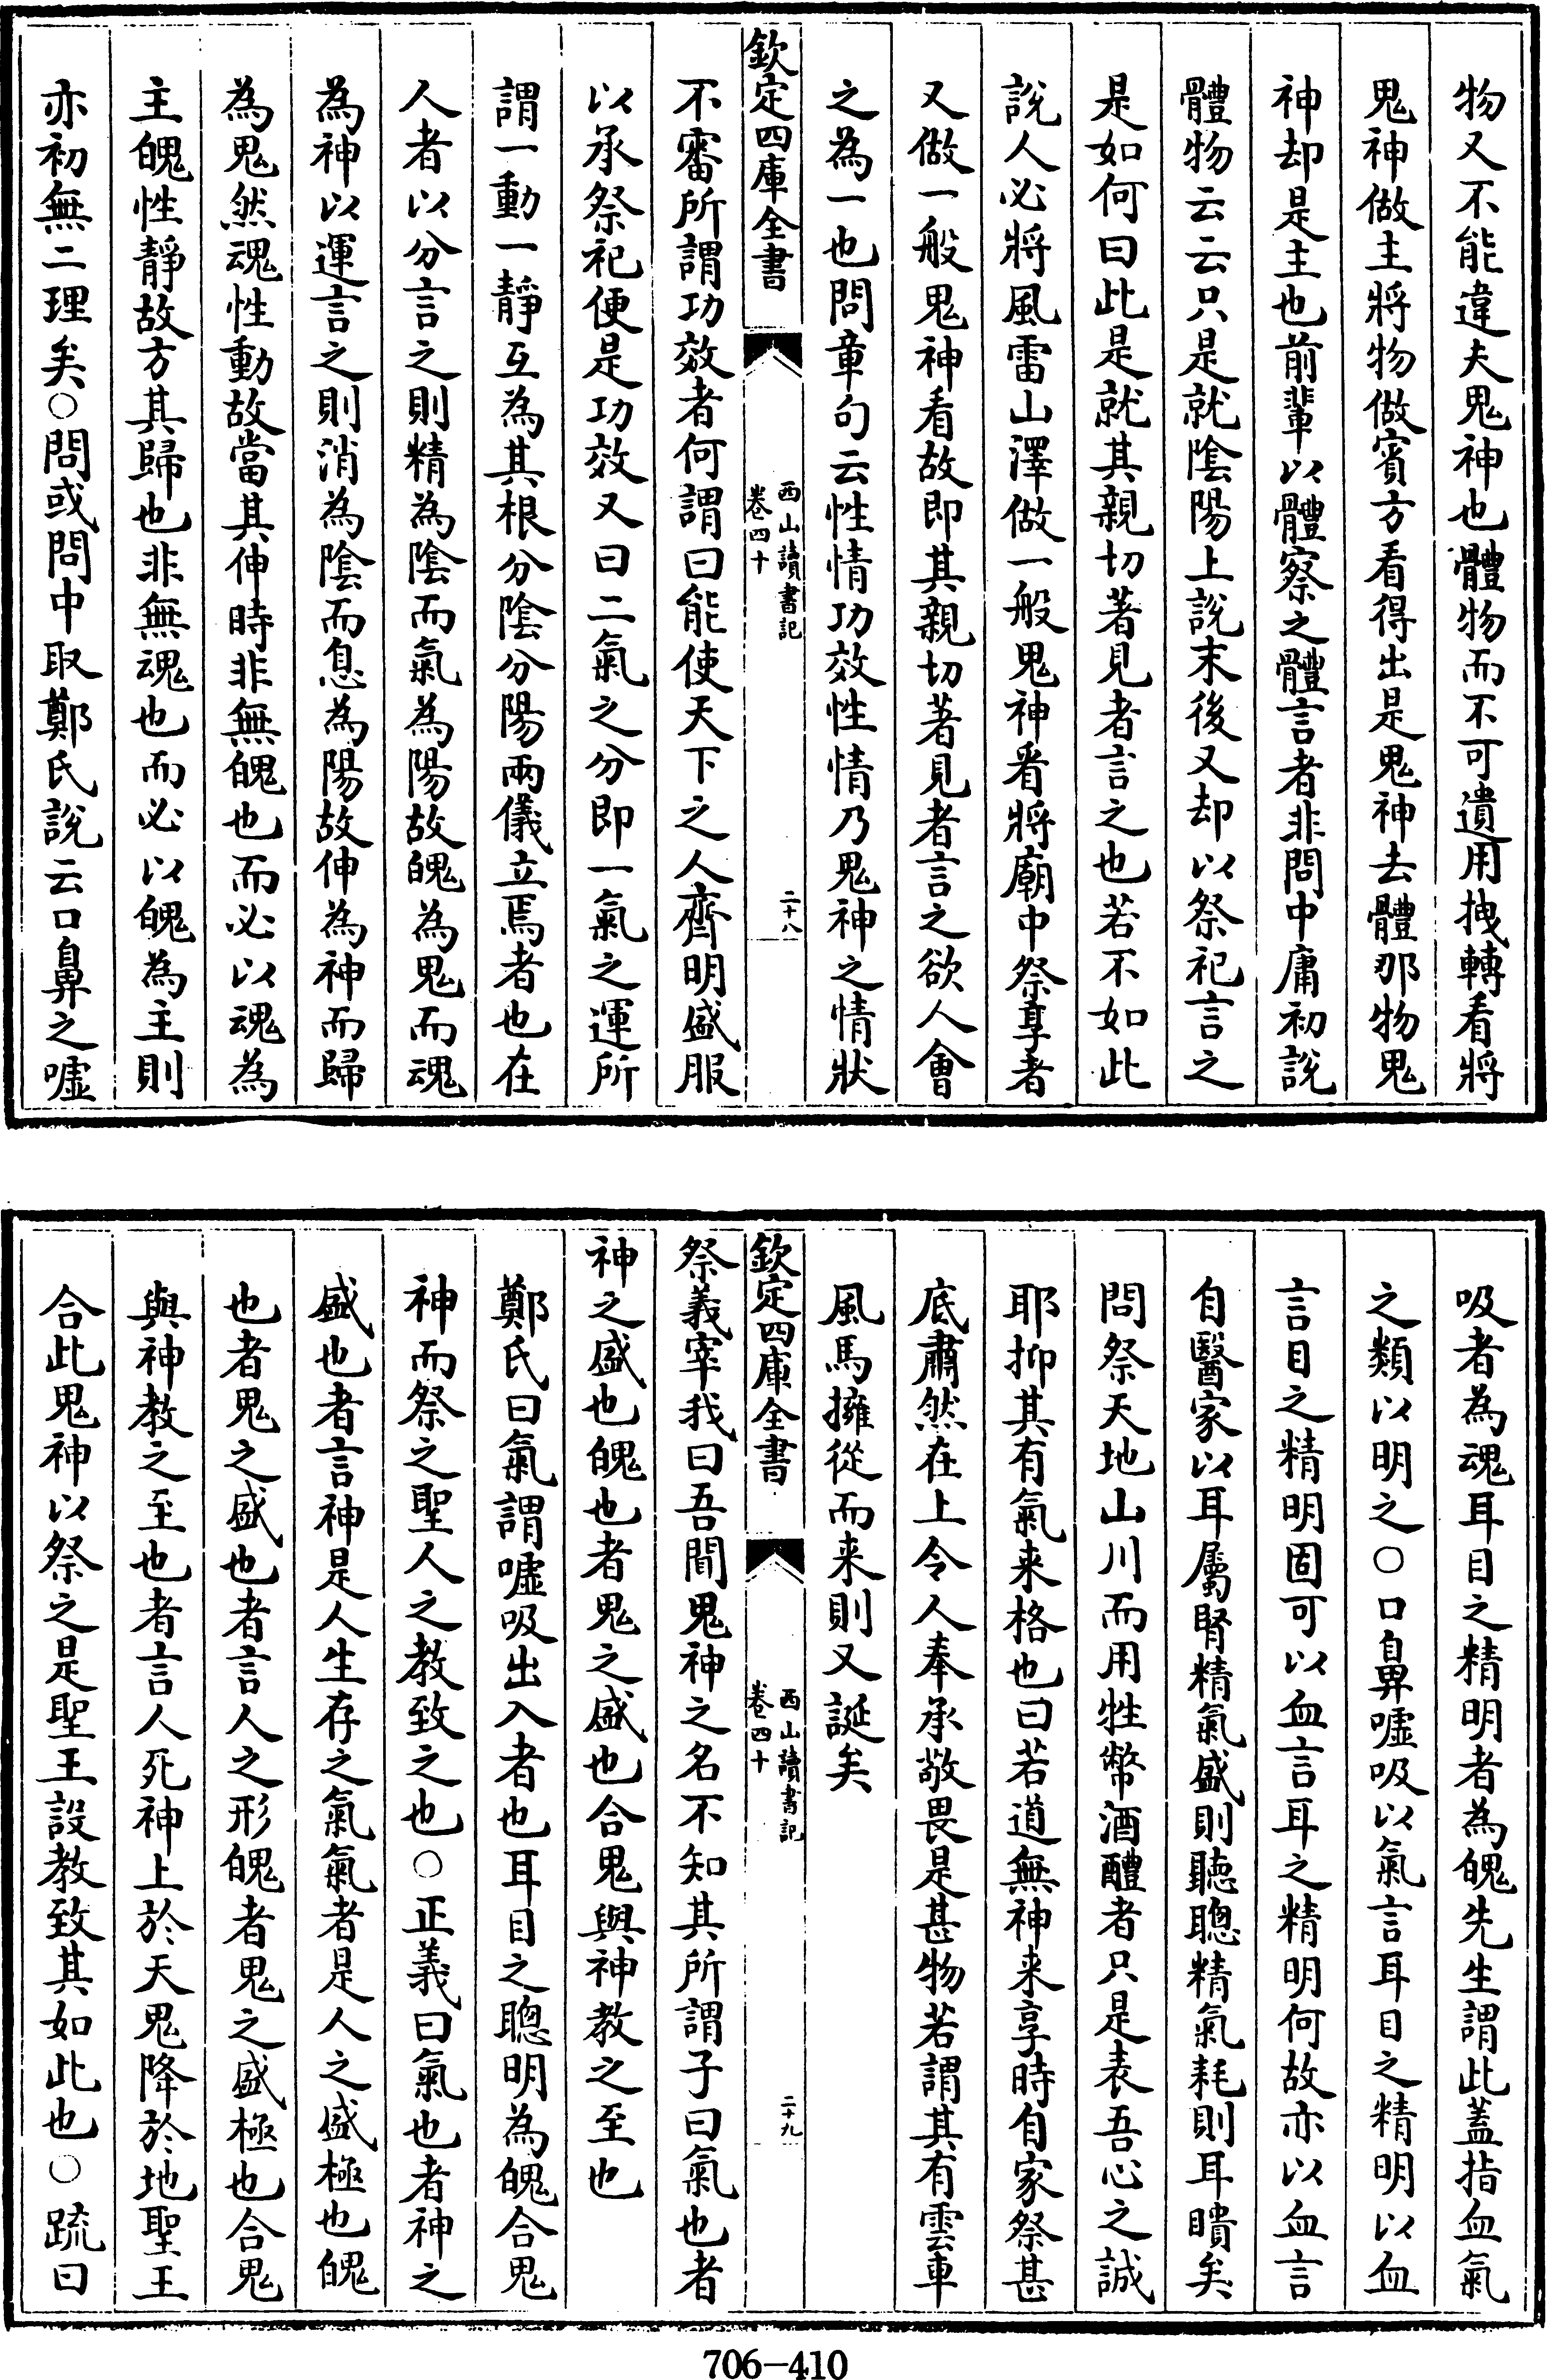 物又不能違夫鬼神也體物而不可遺用拽轉看將
鬼神做主將物做賓方看得出是鬼神去體那物鬼
神却是主也前輩以體察之體言者非問中庸初說
體物云云只是就隂陽上說末後又却以祭祀言之
是如何曰此是就其親切著見者言之也若不如此
說人必將風雷山澤做一般鬼神看將廟中祭享者
又做一般鬼神看故即其親切著見者言之欲人會
之為一也問章句云性情功效性情乃鬼神之情狀
欽定四庫全書
西山讀書記
卷四十
二十八
不審所謂功效者何謂曰能使天下之人齊明盛服
以承祭祀便是功效又曰二氣之分即一氣之運所
謂一動一靜互為其根分隂分陽兩儀立焉者也在
人者以分言之則精為隂而氣為陽故魄為鬼而魂
為神以運言之則消為隂而息為陽故伸為神而歸
為鬼然魂性動故當其伸時非無魄也而必以魂為
主魄性靜故方其歸也非無魂也而必以魄為主則
亦初無二理矣○問或問中取鄭氏說云口鼻之噓
吸者為魂耳目之精明者為魄先生謂此蓋指血氣
之類以明之○口鼻噓吸以氣言耳目之精明以血
言目之精明固可以血言耳之精明何故亦以血言
曰醫家以耳屬腎精氣盛則聽聰精氣耗則耳聵矣
問祭天地山川而用牲幣酒醴者只是表吾心之誠
耶抑其有氣来格也曰若道無神来享時自家祭甚
底肅然在上令人奉承敬畏是甚物若謂其有雲車
風馬擁從而来則又誕矣
欽定四庫全書
西山讀書記
卷四十
二十九
祭義宰我曰吾聞鬼神之名不知其所謂子曰氣也者
神之盛也魄也者鬼之盛也合鬼與神教之至也
鄭氏曰氣謂噓吸出入者也耳目之聰明為魄合鬼
神而祭之聖人之教致之也○正義曰氣也者神之
盛也者言神是人生存之氣氣者是人之盛極也魄
也者鬼之盛也者言人之形魄者鬼之盛極也合鬼
與神教之至也者言人死神上於天鬼降於地聖王
合此鬼神以祭之是聖王設教致其如此也○疏曰
706-410